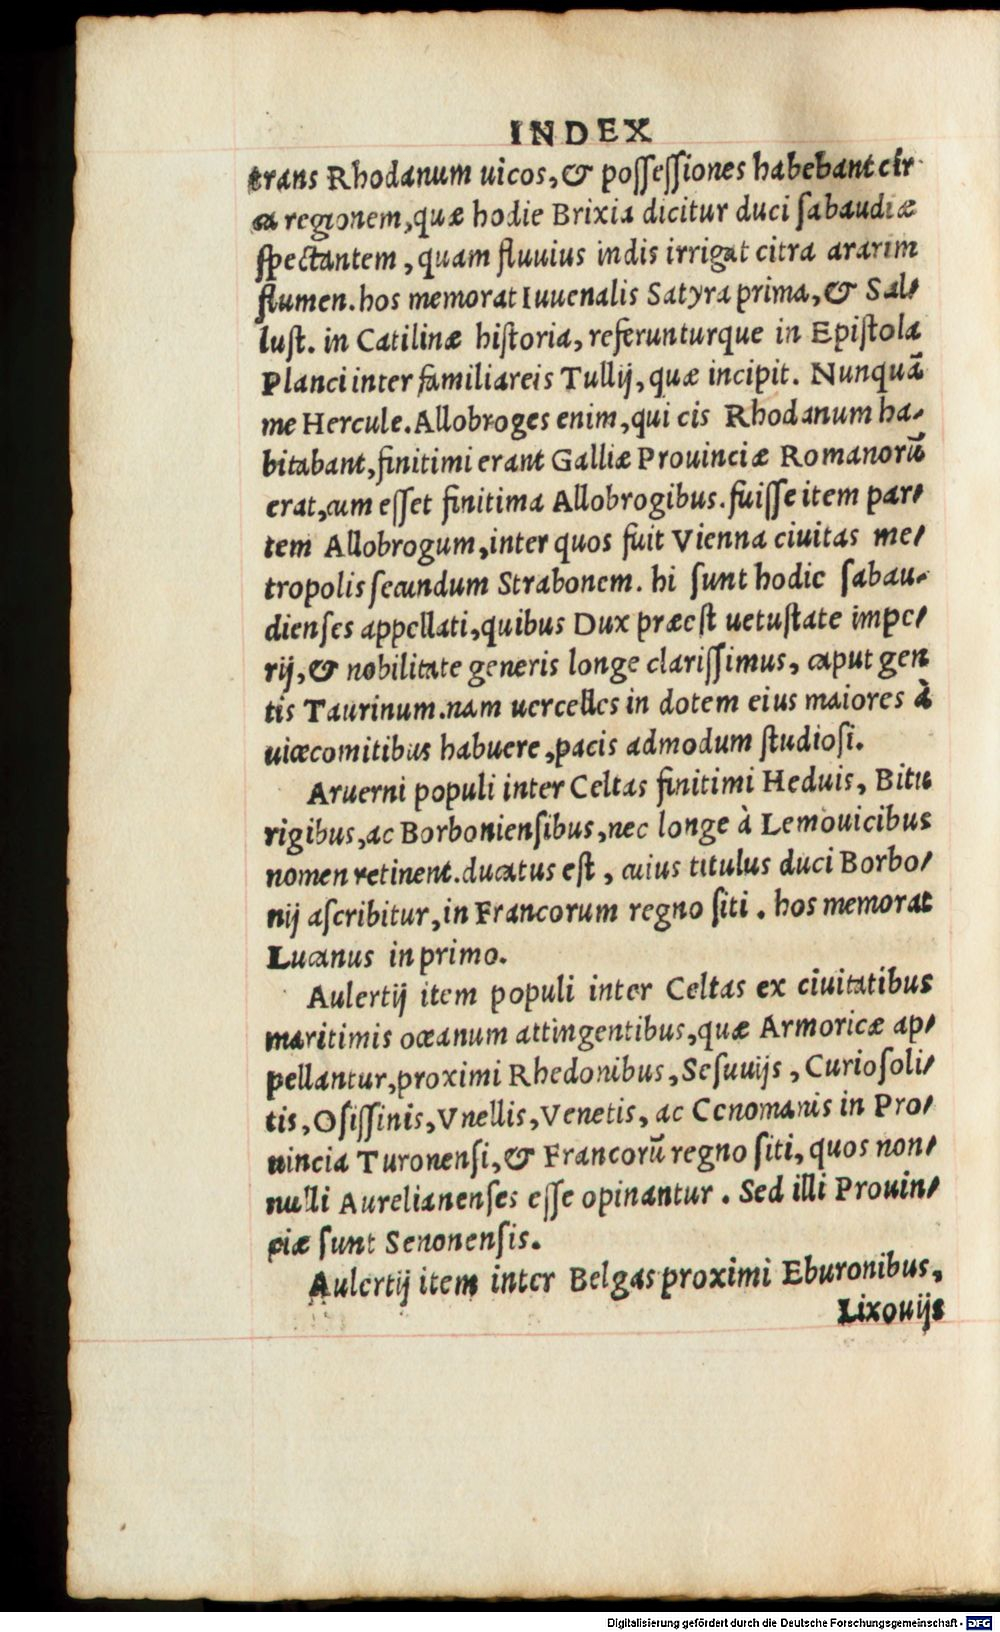 INDEX
trans Rhodanum uicos, & possessiones habebant cir
ca regionem, quæ hodie Brixia dicitur duci sabaudiæ
spectantem, quam fluuius indis irrigat citra ararim
flumen. hos memorat Iuuenalis Satyra prima, & Sal-
lust. in Catilinæ historia, referunturque in Epistola
Planci inter familiareis Tullij, quæ incipit. Nunquã
me Hercule. Allobroges enim, qui cis Rhodanum ha-
bitabant, finitimi erant Galliæ Prouinciæ Romanorũ
erat, cum esset finitima Allobrogibus. fuisse item par-
tem Allobrogum, inter quos fuit Vienna ciuitas me-
tropolis secundum Strabonem. hi sunt hodie sabau-
dienses appellati, quibus Dux præest uetustate impe-
rij, & nobilitate generis longe clarissimus, caput gen
tis Taurinum. nam uercelles in dotem eius maiores à
uicecomitibus habuere, pacis admodum studiosi.
Aruerni populi inter Celtas finitimi Heduis, Bitu
rigibus, ac Borboniensibus, nec longe à Lemouicibus
nomen retinent. ducatus est, cuius titulus duci Borbo-
nij ascribitur, in Francorum regno siti. hos memorat
Lucanus in primo.
Aulertij item populi inter Celtas ex ciuitatibus
maritimis oceanum attingentibus, quæ Armoricæ ap-
pellantur, proximi Rhedonibus, Sesuuijs, Curiosoli-
tis, Osissinis, Vnellis, Venetis, ac Cenomanis in Pro-
uincia Turonensi, & Francorũ regno siti, quos non-
nulli Aurelianenses esse opinantur. Sed illi Prouin-
ciæ sunt Senonensis.
Aulertij item inter Belgas proximi Eburonibus,
Lixouijs
Digitalisierung gefördert durch die Deutsche Forschungsgemeinschaft - DFG